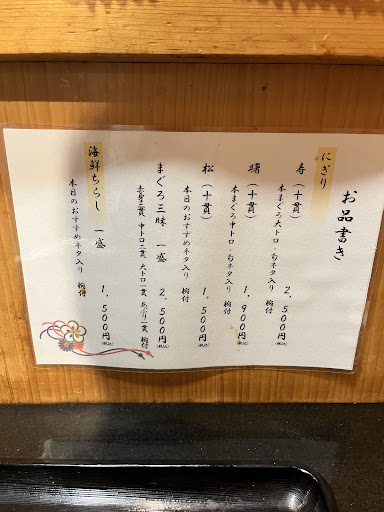 お品書き
にぎり
寿（十貫） 2,500円(税込)
本まぐろ大トロ・旬ネタ入り 椀付
曙（十貫） 1,900円(税込)
本まぐろ中トロ・旬ネタ入り 椀付
松（十貫） 1,500円(税込)
本日のおすすめネタ入り 椀付
まぐろ三昧 一盛 2,500円(税込)
赤身三貫 中トロ二貫 大トロ一貫 炙り一貫 椀付
海鮮ちらし 一盛 1,500円(税込)
本日のおすすめネタ入り 椀付